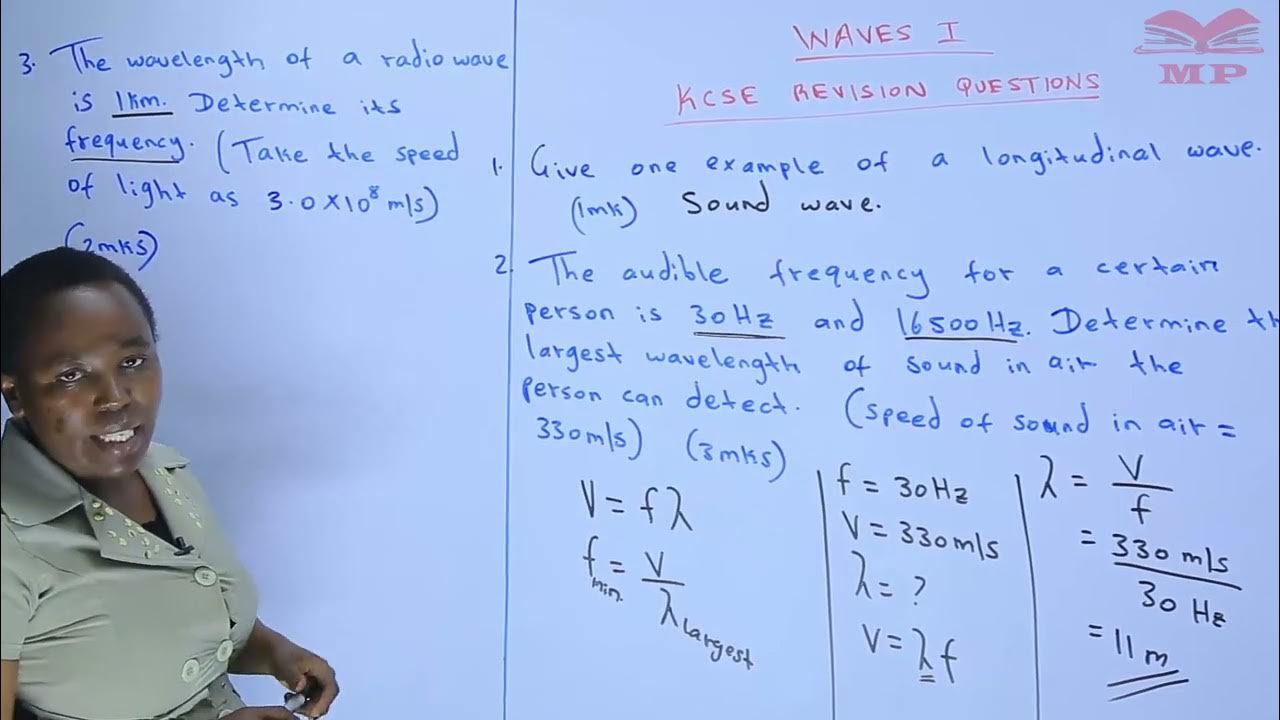 WAVES I
KCSE REVISION QUESTIONS
MP
1. Give one example of a longitudinal wave.
(1mk) Sound wave.
2. The audible frequency for a certain
person is 30Hz and 16500Hz. Determine th
largest wavelength of sound in air the
person can detect. (speed of sound in air =
330m/s) (3mks)
V = fλ
f min. = V / λ largest
f = 30Hz
V = 330m/s
λ = ?
V = λf
λ = V / f
= 330 m/s / 30 Hz
= 11 m
3. The wavelength of a radio wave
is 1km. Determine its
frequency. (Take the speed
of light as 3.0×10⁸ m/s)
(2mks)